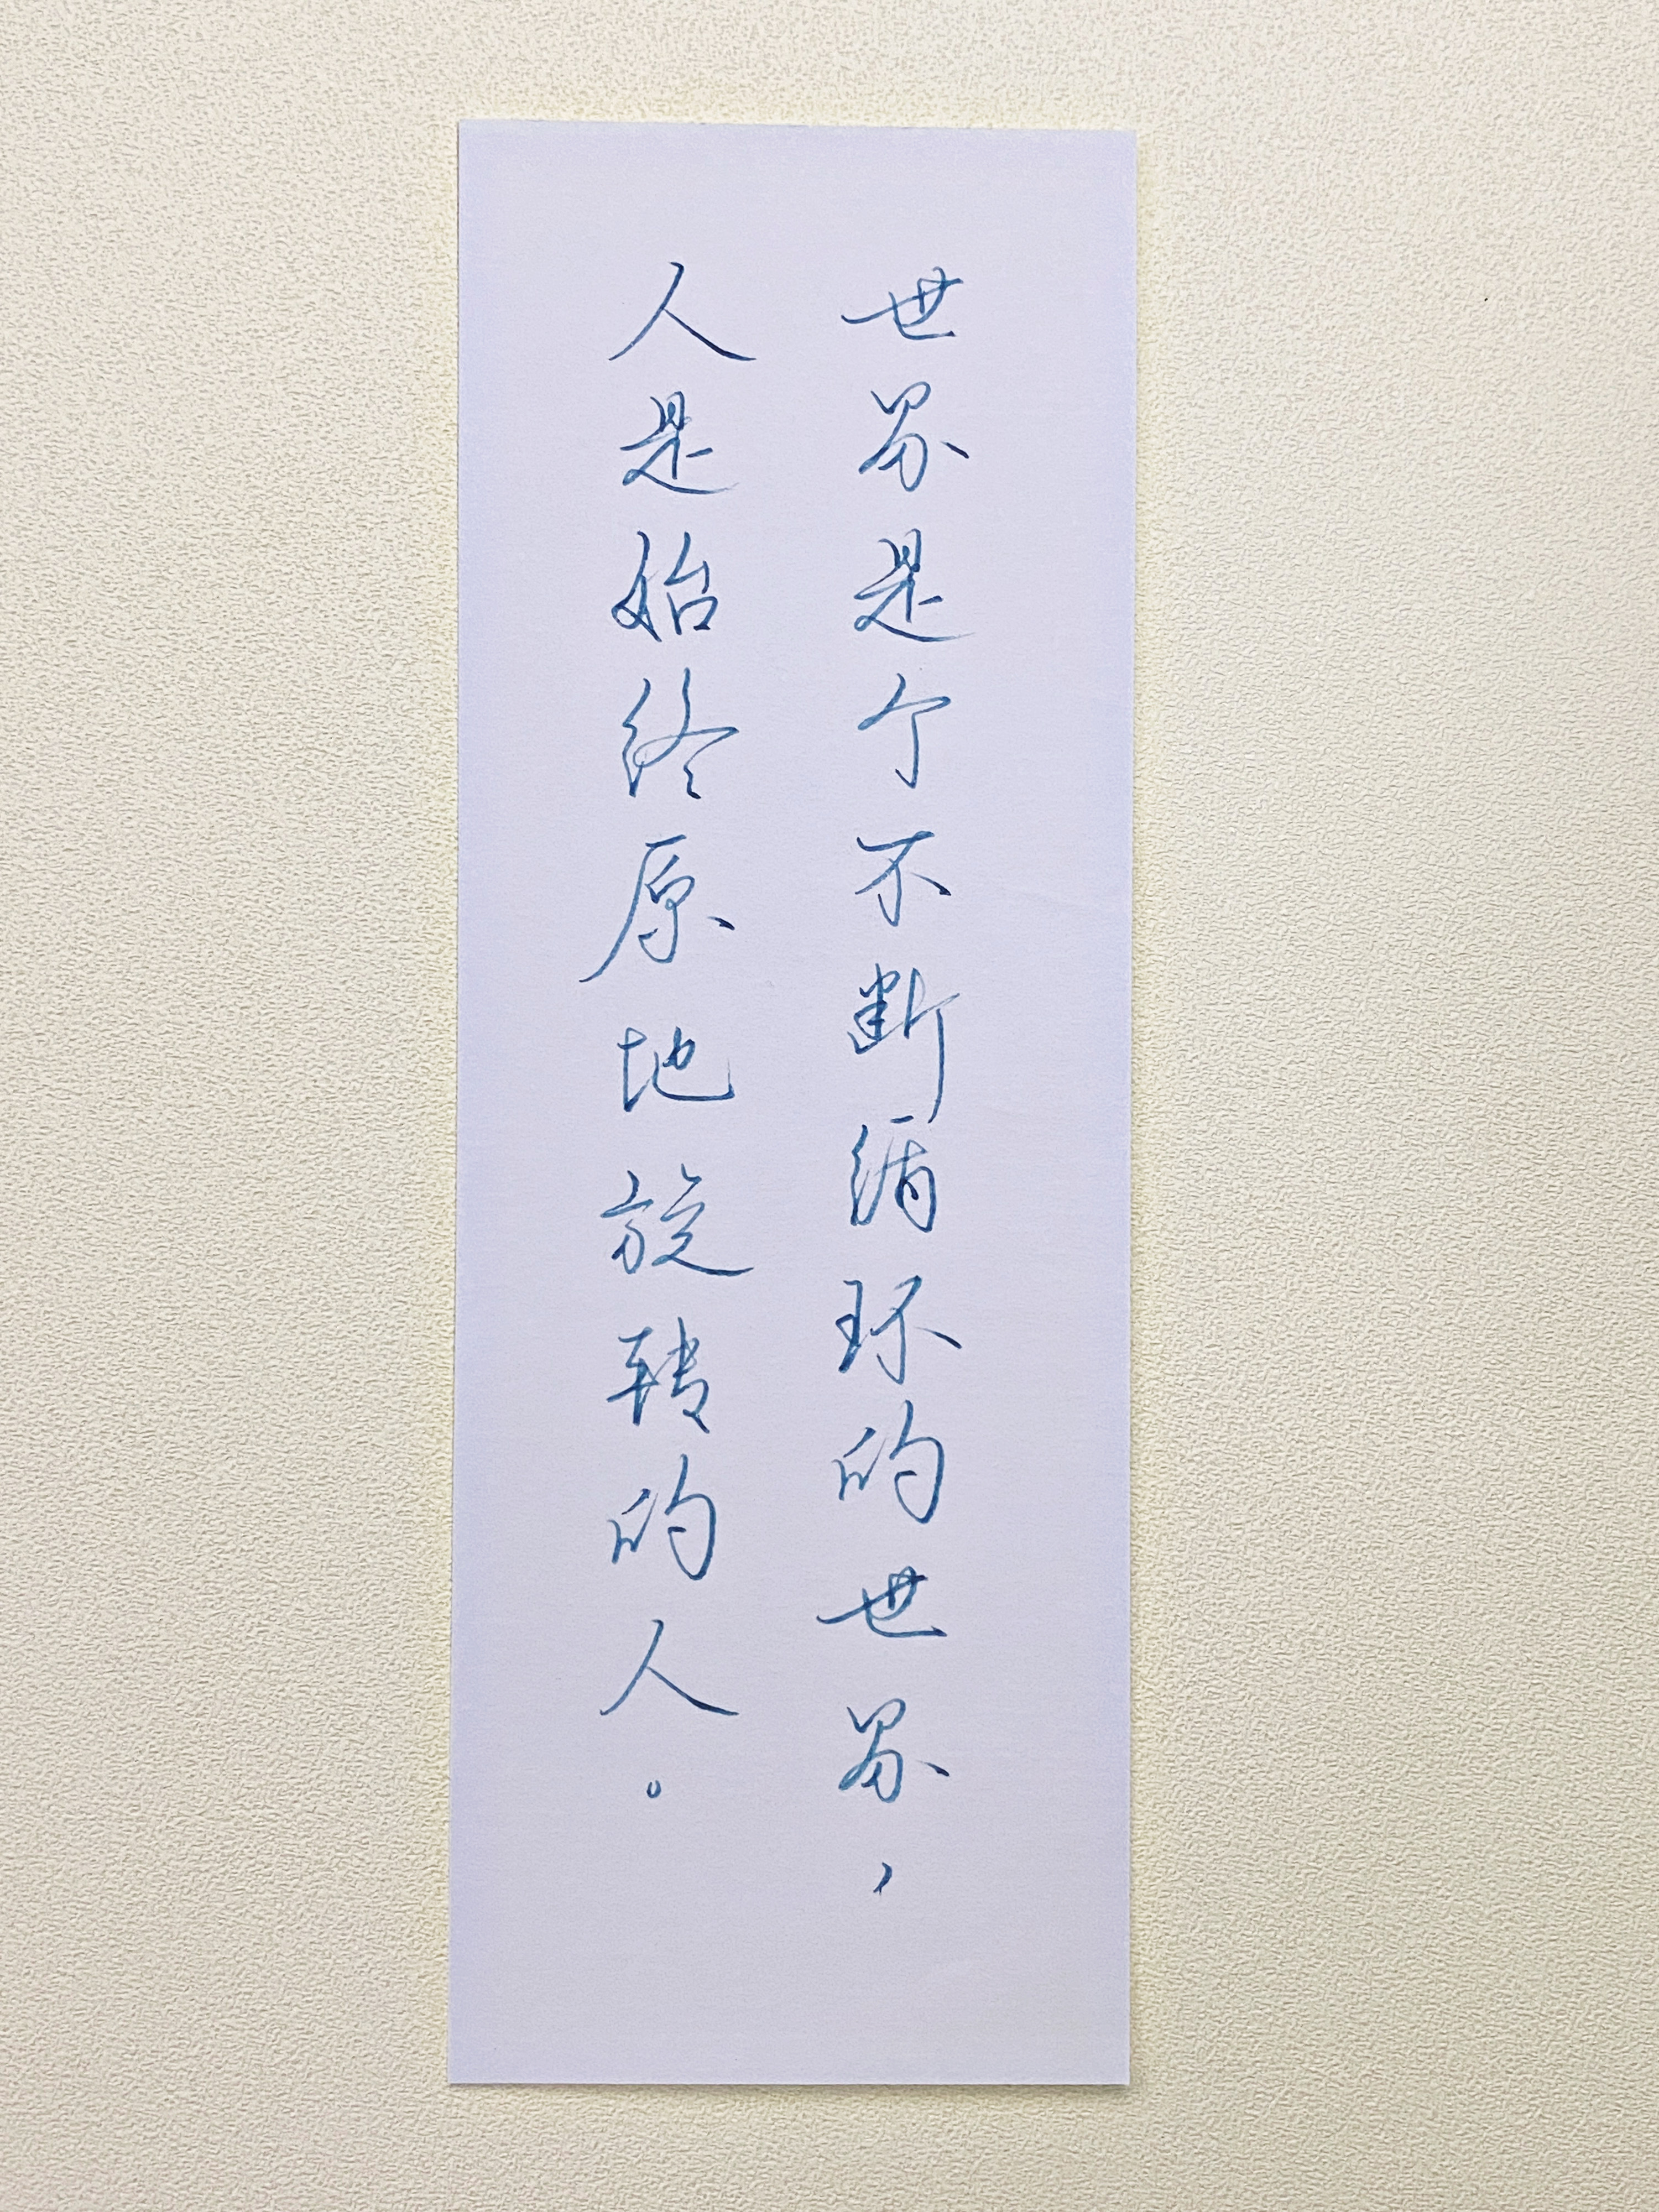 世界是个不断循环的世界，
人是始终原地旋转的人。